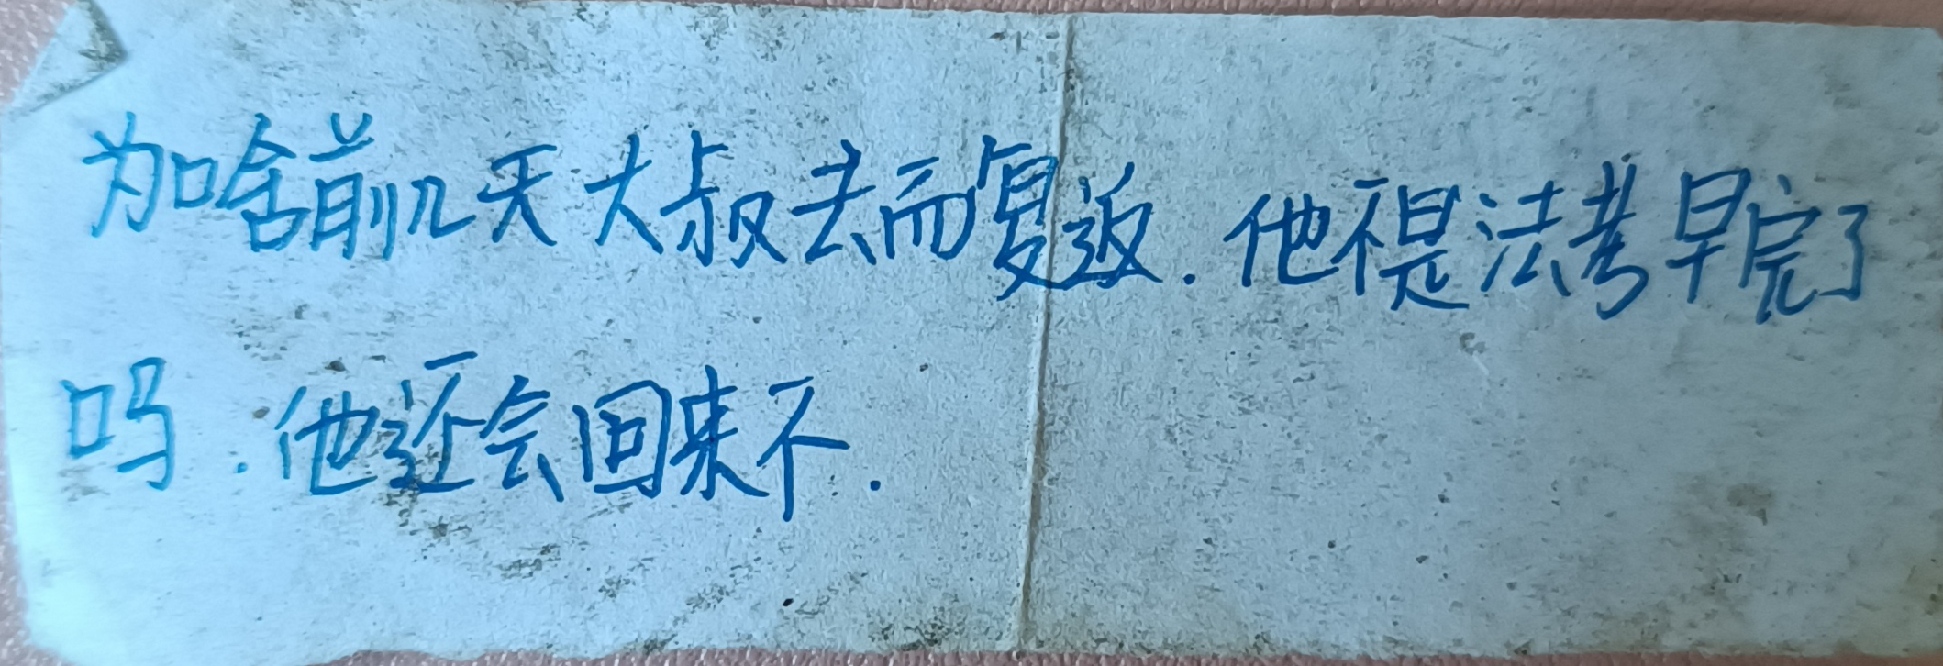 为啥前几天大叔去而复返.他不是法考早完了
吗.他还会回来不.